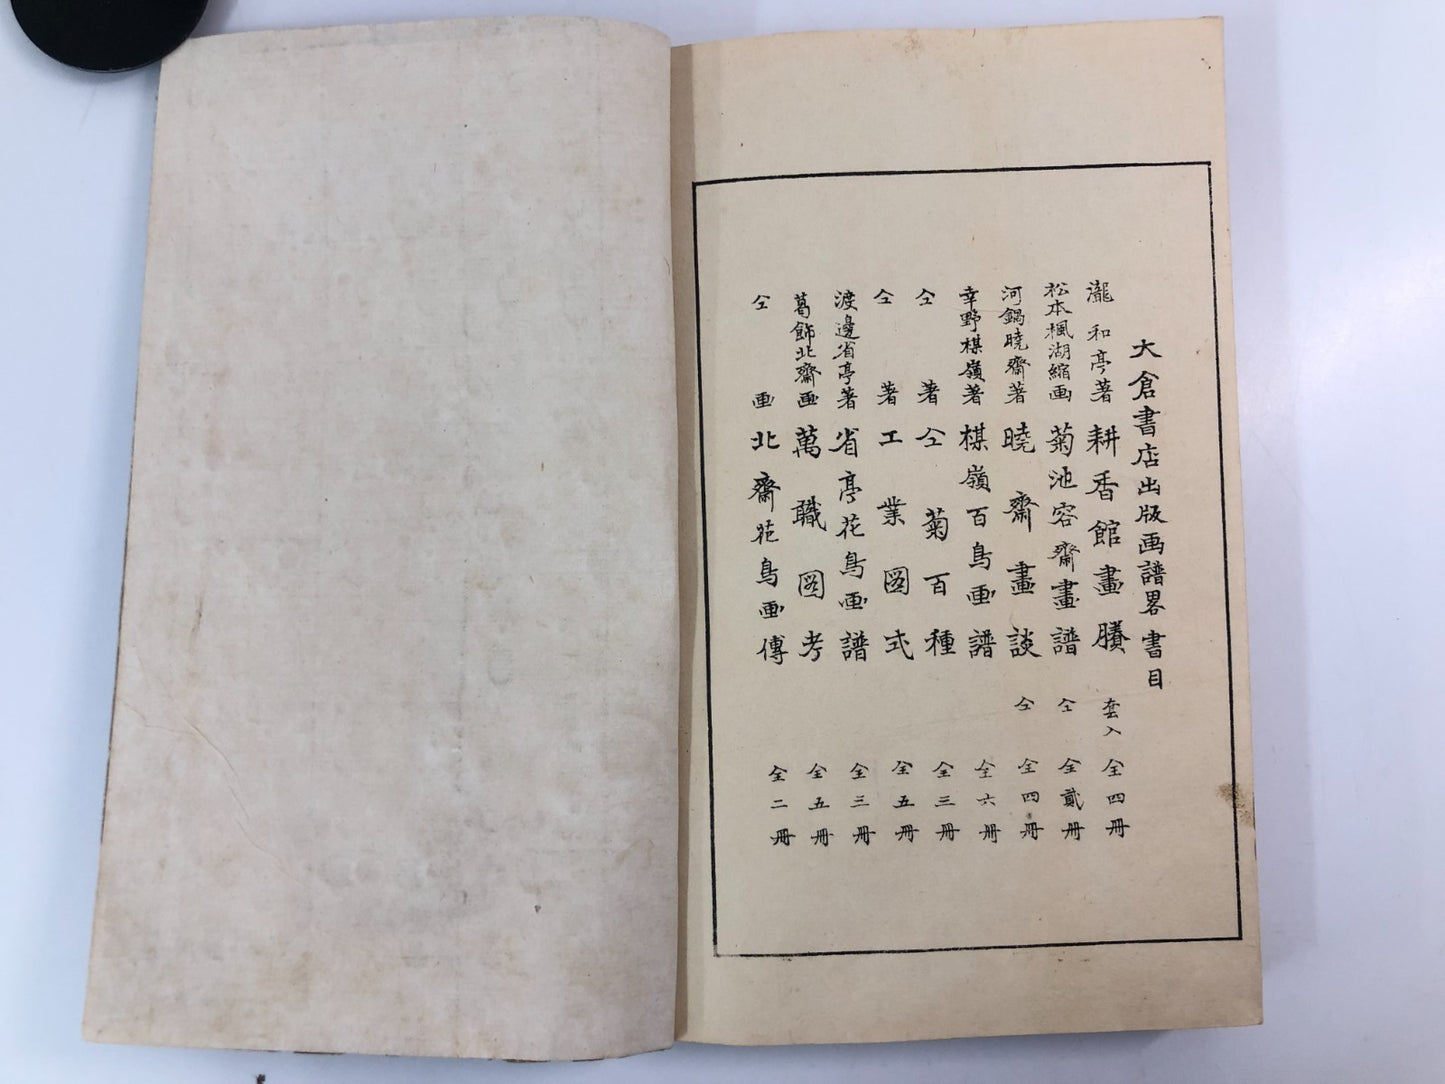 大倉書店出版画譜畧書目
瀧和亭著 耕香館畫賸 套入 全四冊
松本楓湖縮画 菊池容齋畫譜 仝 全貳冊
河鍋暁齋著 暁齋畫談 仝 全四冊
幸野楳嶺著 楳嶺百鳥画譜 全六冊
仝著 仝菊百種 全三冊
仝著 工業図式 全五冊
渡邊省亭著 省亭花鳥画譜 全三冊
葛飾北齋画 萬職図考 全五冊
仝画 北齋花鳥画傳 全二冊